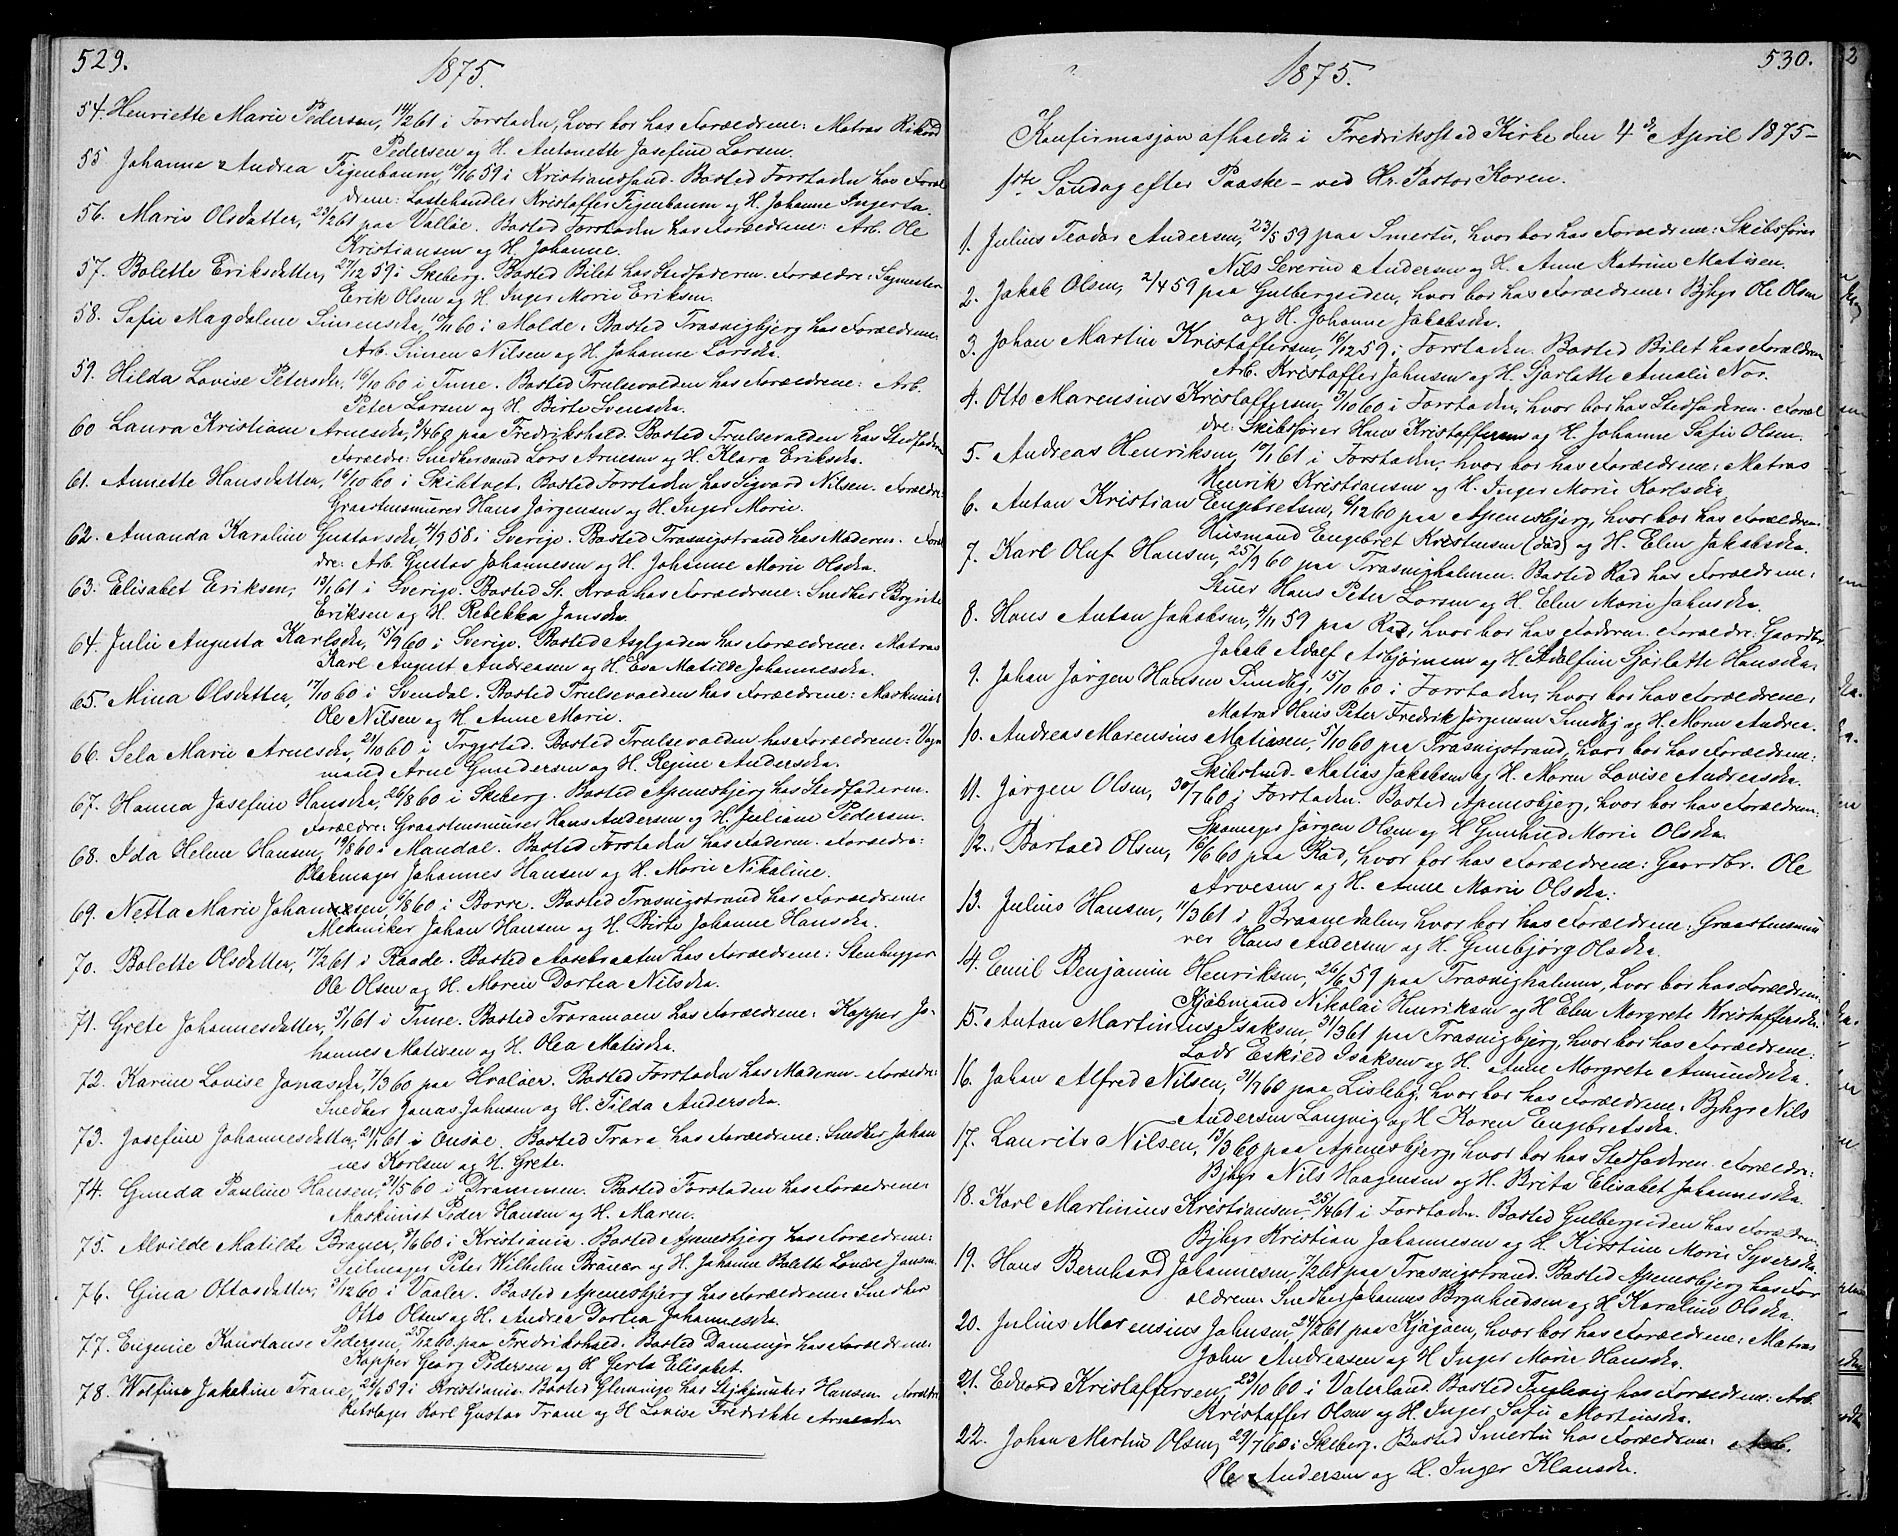 529.
1875.
54. Henriette Marie Pedersen, 14/2 61 i Forstaden, hvor bor hos Forældrene: Matros Rikard
Pedersen og H. Antonette Josefine Larsen.
55 Johanne Andrea Figenbaum, 10/6 59 i Kristiansand. Bosted Forstaden hos Foræl
drene: Lastehandler Kristoffer Figenbaum og H. Johanne
56. Marie Olsdatter, 29/2 61 paa Valløe. Bosted Forstaden hos Forældrene: Arb. Ole
Kristiansen og H. Johanne.
57. Bolette Eriksdatter, 27/12 59 i Skeberg. Bosted Bilet hos Stedfaderen. Forældre:
Erik Olsen og H. Inger Marie Eriksen.
58. Sofie Magdalene Simensda, 10/11 60 i Molde. Bosted Trosvigbjerg hos Forældrene:
Arb. Simen Nilsen og H. Johanne Larsda.
59. Hilda Lovise Petersda, 16/10 60 i Tune. Bosted Trulsevolden hos Forældrene: Arb.
Peter Larsen og H. Birte Svensda.
60 Laura Kristiane Arnesda, 9/4 60 paa Fredrikshald. Bosted Trulsevolden hos Stedfaderen
Forældre: Snedkersvend Lars Arnesen og H. Klara Eriksda.
61. Annette Hansdatter, 16/10 60 i Skibtvet. Bosted Forstaden hos Sigvard Nilsen. Forældre:
Graastensmurer Hans Jørgensen og H. Inger Marie.
62. Amanda Karoline Gustavsda, 4/9 58 i Sverige. Bosted Trosvigstrand hos Moderen. Foræl
dre: Arb. Gustav Johannesen og H. Johanne Marie Olsda.
63. Elisabet Eriksen, 13/1 61 i Sverige. Bosted St. Kraa hos Forældrene: Snedker
Eriksen og H. Rebekka Jansda.
64. Julie Augusta Karlsda, 15/9 60 i Sverige. Bosted Asylgaden hos Forældrene: Matros
Karl August Andreasen og H. Eva Matilde Johannesda.
65. Mina Olsdatter, 17/10 60 i Svendal. Bosted Trulsevolden hos Forældrene: Maskinist
Ole Nilsen og H. Anne Marie.
66. Sela Marie Arnesda, 21/10 60 i Trygstad. Bosted Trulsevolden hos Forældrene: Vogn
mand Arne Gundersen og H. Regine Andersda.
67. Hanna Josefine Hansda, 26/8 60 i Skeberg. Bosted Apenesbjerg hos Stedfaderen.
Forældre: Graastensmurer Hans Andersen og H. Juliane Pedersen.
68. Ida Helene Hansen, 19/8 60 i Mandal. Bosted Forstaden hos Faderen. Forældre:
Blokmager Johannes Hansen og H. Marie Nikoline.
69. Netta Marie Johannesen, 6/8 60 i Borre. Bosted Trosvigstrand hos Forældrene
Mekaniker Johan Hansen og H. Birte Johanne Hansda.
70. Bolette Olsdatter, 17/2 61 i Raade. Bosted Aasebraaten hos Forældrene: Stenhugger
Ole Olsen og H. Maren Dortea Nilsda.
71. Grete Johannesdatter, 5/1 61 i Tune. Bosted Traramoen hos Forældrene: Kopper Jo-
hannes Matisen og H. Olea Matisda.
72. Karine Lovise Jonasda, 7/3 60 paa Hvaløer. Bosted Forstaden hos Moderen. Forældre:
Snedker Jonas Johnsen og H. Tilda Andersda.
73. Josefine Johannesdatter, 21/1 61 i Onsøe. Bosted Trara hos Forældrene: Snedker Johan
nes Karlsen og H. Grete.
74. Gunda Pauline Hansen, 31/5 60 i Drammen. Bosted Forstaden hos Forældrene:
Maskinist Peder Hansen og H. Maren.
75. Alvilde Matilde Brauer, 8/6 60 i Kristiania. Bosted Apenesbjerg hos Forældrene:
Seilmager Peter Wilhelm Brauer og H. Johanne Bolette Lovise Jansen.
76. Gina Ottosdatter, 9/12 60 i Vaaler. Bosted Apenesbjerg hos Forældrene: Snedker
Otto Olsen og H. Andrea Dortea Johannesda.
77. Eugenie Konstanse Pedersen, 25/12 60 paa Fredrikshald. Bosted Dammyr hos Forældrene:
Kopper Georg Pedersen og H. Jerta Elisabet.
78. Wolfine Jakobine Trane, 24/9 59 i Kristiania. Bosted Glemminge hos Hansen Forældre
Karl Gustav Trane og H Lovise Fredrikke Arnesda
530.
1875.
Konfirmasjon afholdt i Fredriksstad Kirke den 4de April 1875-
1ste Søndag efter Paaske - ved Hr. Pastor Koren.
1. Julius Teodor Andersen, 23/5 59 paa Smertu, hvor bor hos Forældrene: Skibsfører
Nils Severin Andersen og H. Anne Katrine Matisen.
2. Jakob Olsen, 2/4 59 paa Gulbergsiden, hvor bor hos Forældrene: Bjhgs Ole Olsen
og H. Johanne Jakobsda.
3. Johan Martin Kristoffersen, 16/12 59 i Forstaden. Bosted Bilet hos Forældrene
Arb. Kristoffer Johnsen og H. Sjarlotte Amalie Nor.
4. Otto Marensius Kristoffersen, 9/10 60 i Forstaden, hvor bor hos Stedfaderen. Foræl
dre: Skibsfører Hans Kristoffersen og H. Johanne Sofie Olsen.
5. Andreas Henriksen, 17/1 61 i Forstaden, hvor bor hos Forældrene: Matros
Henrik Kristiansen og H. Inger Marie Karlsda
6. Anton Kristian Engebretsen, 6/12 60 paa Apenesbjerg, hvor bor hos Forældrene:
Husmand Engebret Kristensen (død) og H. Elen Jakobsda.
7. Karl Oluf Hansen, 25/9 60 paa Trosvigholmen. Bosted Rød hos Forældrene:
Stuer Hans Peter Larsen og H. Elen Marie Johnsda.
8. Hans Anton Jakobsen, 4/11 59 paa Rød, hvor bor hos Faderen. Forældre: Gaardbr.
Jakob Adolf Asbjørnsen og H. Adolfine Sjarlotte Hansda.
9. Johan Jørgen Hansen Sundby, 15/10 60 i Forstaden, hvor bor hos Forældrene:
Matros Hans Peter Fredrik Jørgensen Sundby og H. Maren Andrea.
10. Andreas Marensius Matiasen, 3/10 60 paa Trosvigstrand, hvor bor hos Forældrene:
Skibstmd. Matias Jakobsen og H. Maren Lovise Andreasda.
11. Jørgen Olsen, 30/7 60 i Forstaden. Bosted Apenesbjerg, hvor bor hos Forældrene:
Skomagr Jørgen Olsen og H Gunhild Marie Olsda.
12. Bartold Olsen, 16/6 60 paa Rød, hvor bor hos Forældrene: Gaardbr. Ole
Arvesen og H. Anne Marie Olsda:
13. Julius Hansen, 11/3 61 i Braanedalen, hvor bor hos Forældrene: Graastensmu
rer Hans Andersen og H. Gunbjørg Olsda.
14. Emil Benjamin Henriksen, 26/6 59 paa Trosvigholmen, hvor bor hos Forældrene:
Kjøbmand Nikolai Henriksen og H Elen Margrete Kristoffersda.
15. Anton Martinius Isaksen, 31/3 61 paa Trosvigbjerg, hvor bor hos Forældrene:
Lods Eskild Isaksen og H. Anne Margrete Amundsda.
16. Johan Alfred Nilsen, 31/7 60 paa Lisleby, hvor bor hos Forældrene: Bjhgs Nils
Andersen Langvig og H Karen Engebretsda.
17. Laurits Nilsen, 13/3 60 paa Apenesbjerg, hvor bor hos Stedfaderen. Forældre:
Bjhgs Nils Haagensen og H. Brita Elisabet Johannesda.
18. Karl Martinius Kristiansen, 25/4 61 i Forstaden. Bosted Gulbergsiden hos Forældrene
Bjhgs Kristian Johannesen og H. Kirstine Marie Syversda.
19. Hans Bernhard Johannesen, 7/2 61 paa Trosvigstrand. Bosted Apenesbjerg hos For
ældrene: Snedker Johannes Brynhildsen og H Karoline Olsda.
20. Julius Marensius Johnsen, 24/2 61 paa Kjøgøen, hvor bor hos Forældrene: Matros
John Andreasen og H Inger Marie Hansda.
21. Edvard Kristoffersen, 23/10 60 i Vaterland. Bosted hos Forældrene: Arb.
Kristoffer Olsen og H. Inger Sofie Martinsda.
22. Johan Martin Olsen, 29/7 60 i Skeberg. Bosted Smertu hos Forældrene: Arb.
Ole Andersen og H. Inger Klausda.